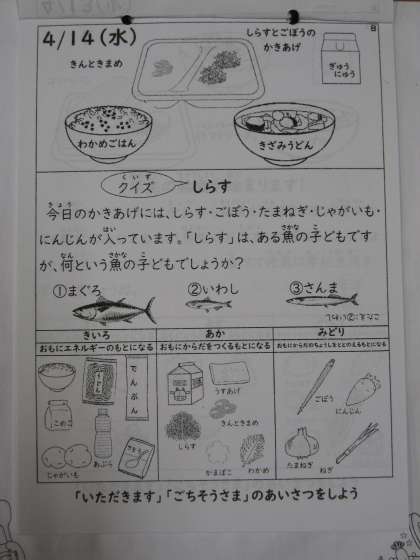 4/14(水)
きんときまめ
しらすとごぼうの
かきあげ
ぎゅう
にゅう
わかめごはん
きざみうどん
くいず
クイズ
しらす
きょう
今日のかきあげには、しらす・ごぼう・たまねぎ・じゃがいも・
はい さかな こ
にんじんが入っています。「しらす」は、ある魚の子どもです
なん さかな こ
が、何という魚の子どもでしょうか?
①まぐろ ②いわし ③さんま
こたえ:②いわし
きいろ あか みどり
おもにエネルギーのもとになる おもにからだをつくるもとになる おもにからだのちょうしをととのえるもとになる
でんぷん
うどん
こめこ
あぶら
さとう
じゃがいも
うすあげ
きんときまめ
しらす
かまぼこ
わかめ
ごぼう
にんじん
たまねぎ
ねぎ
「いただきます」「ごちそうさま」のあいさつをしよう